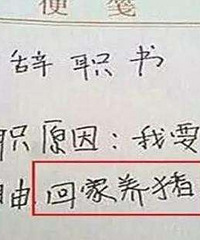 便笺
辞职书
职原因：我要
由回家养猪